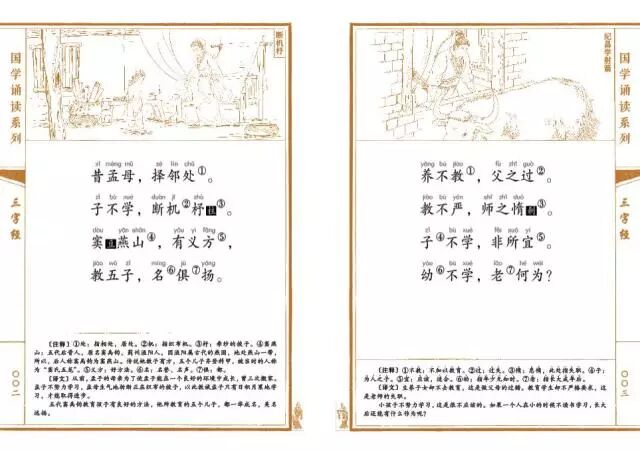 国学诵读系列
三字经
〇〇二
断机杼
xī mèng mǔ zé lín chǔ
昔孟母，择邻处①。
zǐ bù xué duàn jī zhù
子不学，断机②杼③。
dòu yān shān yǒu yì fāng
窦燕山④，有义方⑤，
jiào wǔ zǐ míng jù yáng
教五子，名⑥俱⑦扬。
【注释】①处：指相处，居处。②机：指织布机。③杼：牵纱的梭子。④燕
山：五代后晋人，原名窦禹钧，蓟州渔阳人，因渔阳属古代的燕国，地处燕山一带，
所以，后人称窦禹钧为窦燕山。传说他教子有方，五个儿子齐登科甲，被当时的人称
为“窦氏五龙”。⑤义方：好方法。⑥名：名誉、名声。⑦俱：都。
【译文】以前，孟子的母亲为了使孟子能在一个良好的环境中成长，曾三次搬家。
孟子不努力学习，孟母生气地折断正在织布的梭子，以此教诫孟子只有日积月累地学
习，才能取得进步。
五代窦禹钧教育孩子有良好的方法，他所教育的五个儿子，都一举成名，美名
远扬。
纪昌学射箭
yǎng bú jiào fù zhī guò
养不教①，父之过②。
jiào bù yán shī zhī duò
教不严，师之惰③。
zǐ bù xué fēi suǒ yí
子④不学，非所宜⑤。
yòu bù xué lǎo hé wéi
幼⑥不学，老⑦何为？
【注释】①不教：不加以教育。②过：过失。③惰：怠惰，此处指失职。④子：
为人之子。⑤宜：应该，适合。⑥幼：指年少无知时。⑦老：指长大成年后。
【译文】生养子女却不去教育，这是做父母的过错。教育学生却不严格要求，这
是老师的失职。
小孩子不努力学习，这是很不应该的。如果一个人在小的时候不读书学习，长大
后还能有什么作为呢？
国学诵读系列
三字经
〇〇三